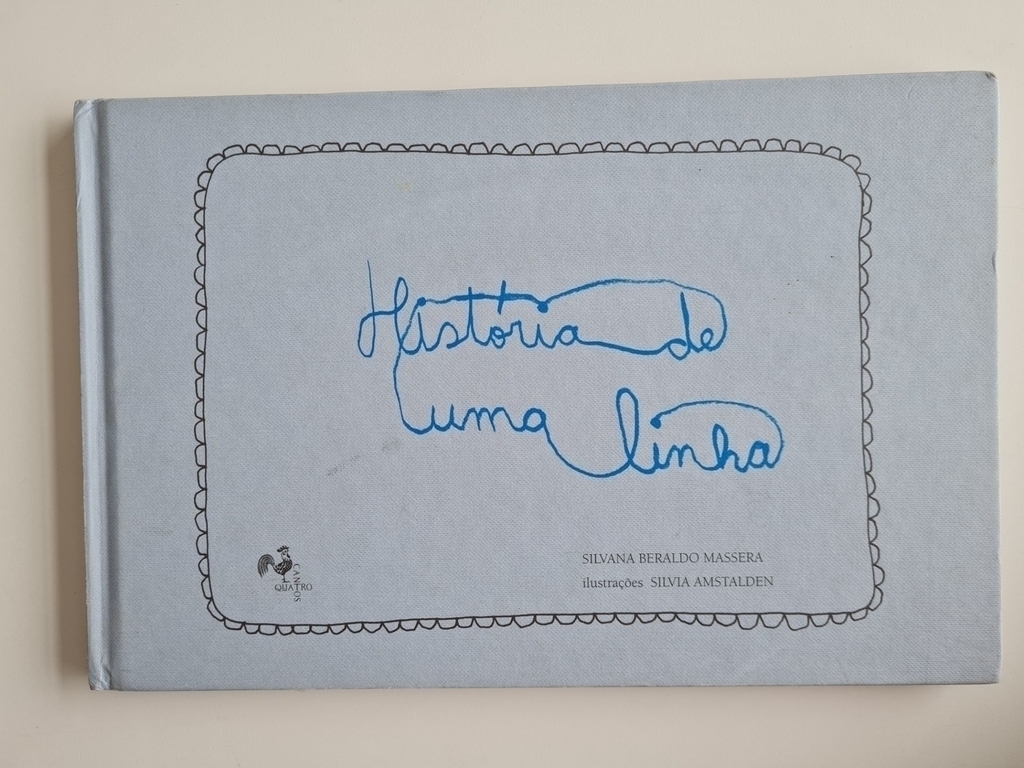 História de
uma linha
SILVANA BERALDO MASSERA
ilustrações SILVIA AMSTALDEN
QUATRO
CANTOS